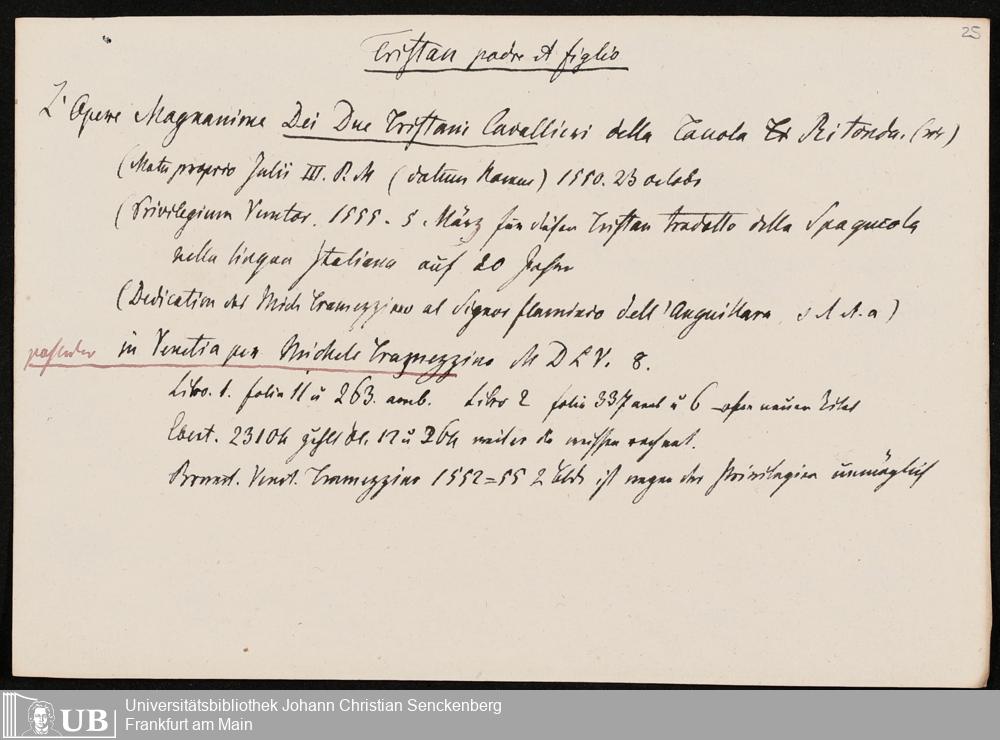 25
Tristan padre et figlio
L'Opere Magnanime Dei Due Tristani Cavallieri della Tauola Ritonda. (wo)
(Motu proprio Julii III. P. M (datum Romae) 1550. 23 octobr
(Privilegium Venetor. 1555. 5. März für diesen Tristan tradotto della Spagnuola
nella lingua Italiana auf 20 Jahre
(Dedication des Mich Tramezzino al Signor flaminio dell'Anguillara s d. a)
in Venetia per Michele Tramezzino M D L V. 8.
Libro. 1. folia 11 u 263. Libro 2 folia 337 u 6 neuen Titel
Ebert. 23104 zehlt Bl. 12 u 264 weil er die weissen rechnet.
Brunet. Venet. Tramezzino 1552=55 2 Bde ist wegen der Privilegien unmöglich
Universitätsbibliothek Johann Christian Senckenberg
Frankfurt am Main
UB